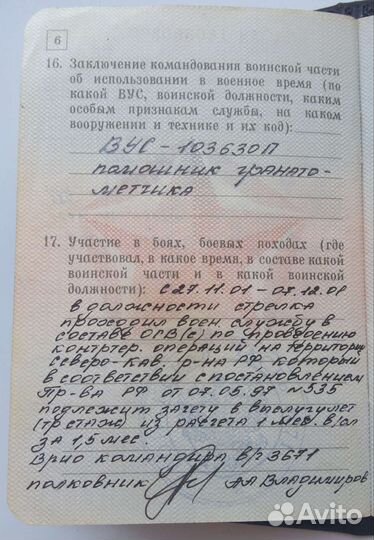 6
16. Заключение командования воинской части
об использовании в военное время (по
какой ВУС, воинской должности, каким
особым признакам службы, на каком
вооружении и технике и их код):
ВУС - 103630П
помошник гранато-
метчика
17. Участие в боях, боевых походах (где
участвовал, в какое время, в составе какой
воинской части и в какой воинской
должности): с 27.11.01 - 07.12.01
в должности стрелка
проходил воен. службу в
составе ОГВ(с) по проведению
контртер. операций на территории
Северо-Кав. р-на РФ, который
в соответствии с постановлением
Пр-ва РФ от 07.05.97 № 535
подлежит зачету в выслугу лет
(тр. стаж) из расчета 1 мес. в/сл
за 1,5 мес.
Врио командира в/ч 3671
полковник А.А Владимиров
Avito